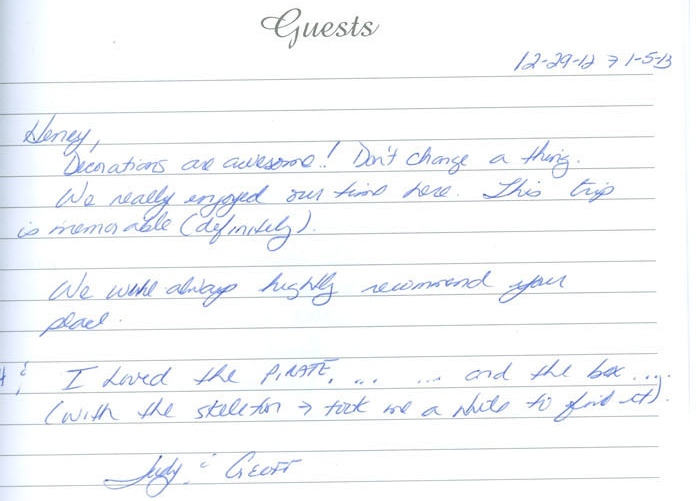 Guests
12-29-12 → 1-5-13
Henry,
Decorations are awesome! Don't change a thing.
We really enjoyed our time here. This trip
is memorable (definitely).
We will always highly recommend your
place.
& I loved the PIRATE, ... ... and the box ....
(with the skeleton → took me a while to find it).
Judy & GEOFF